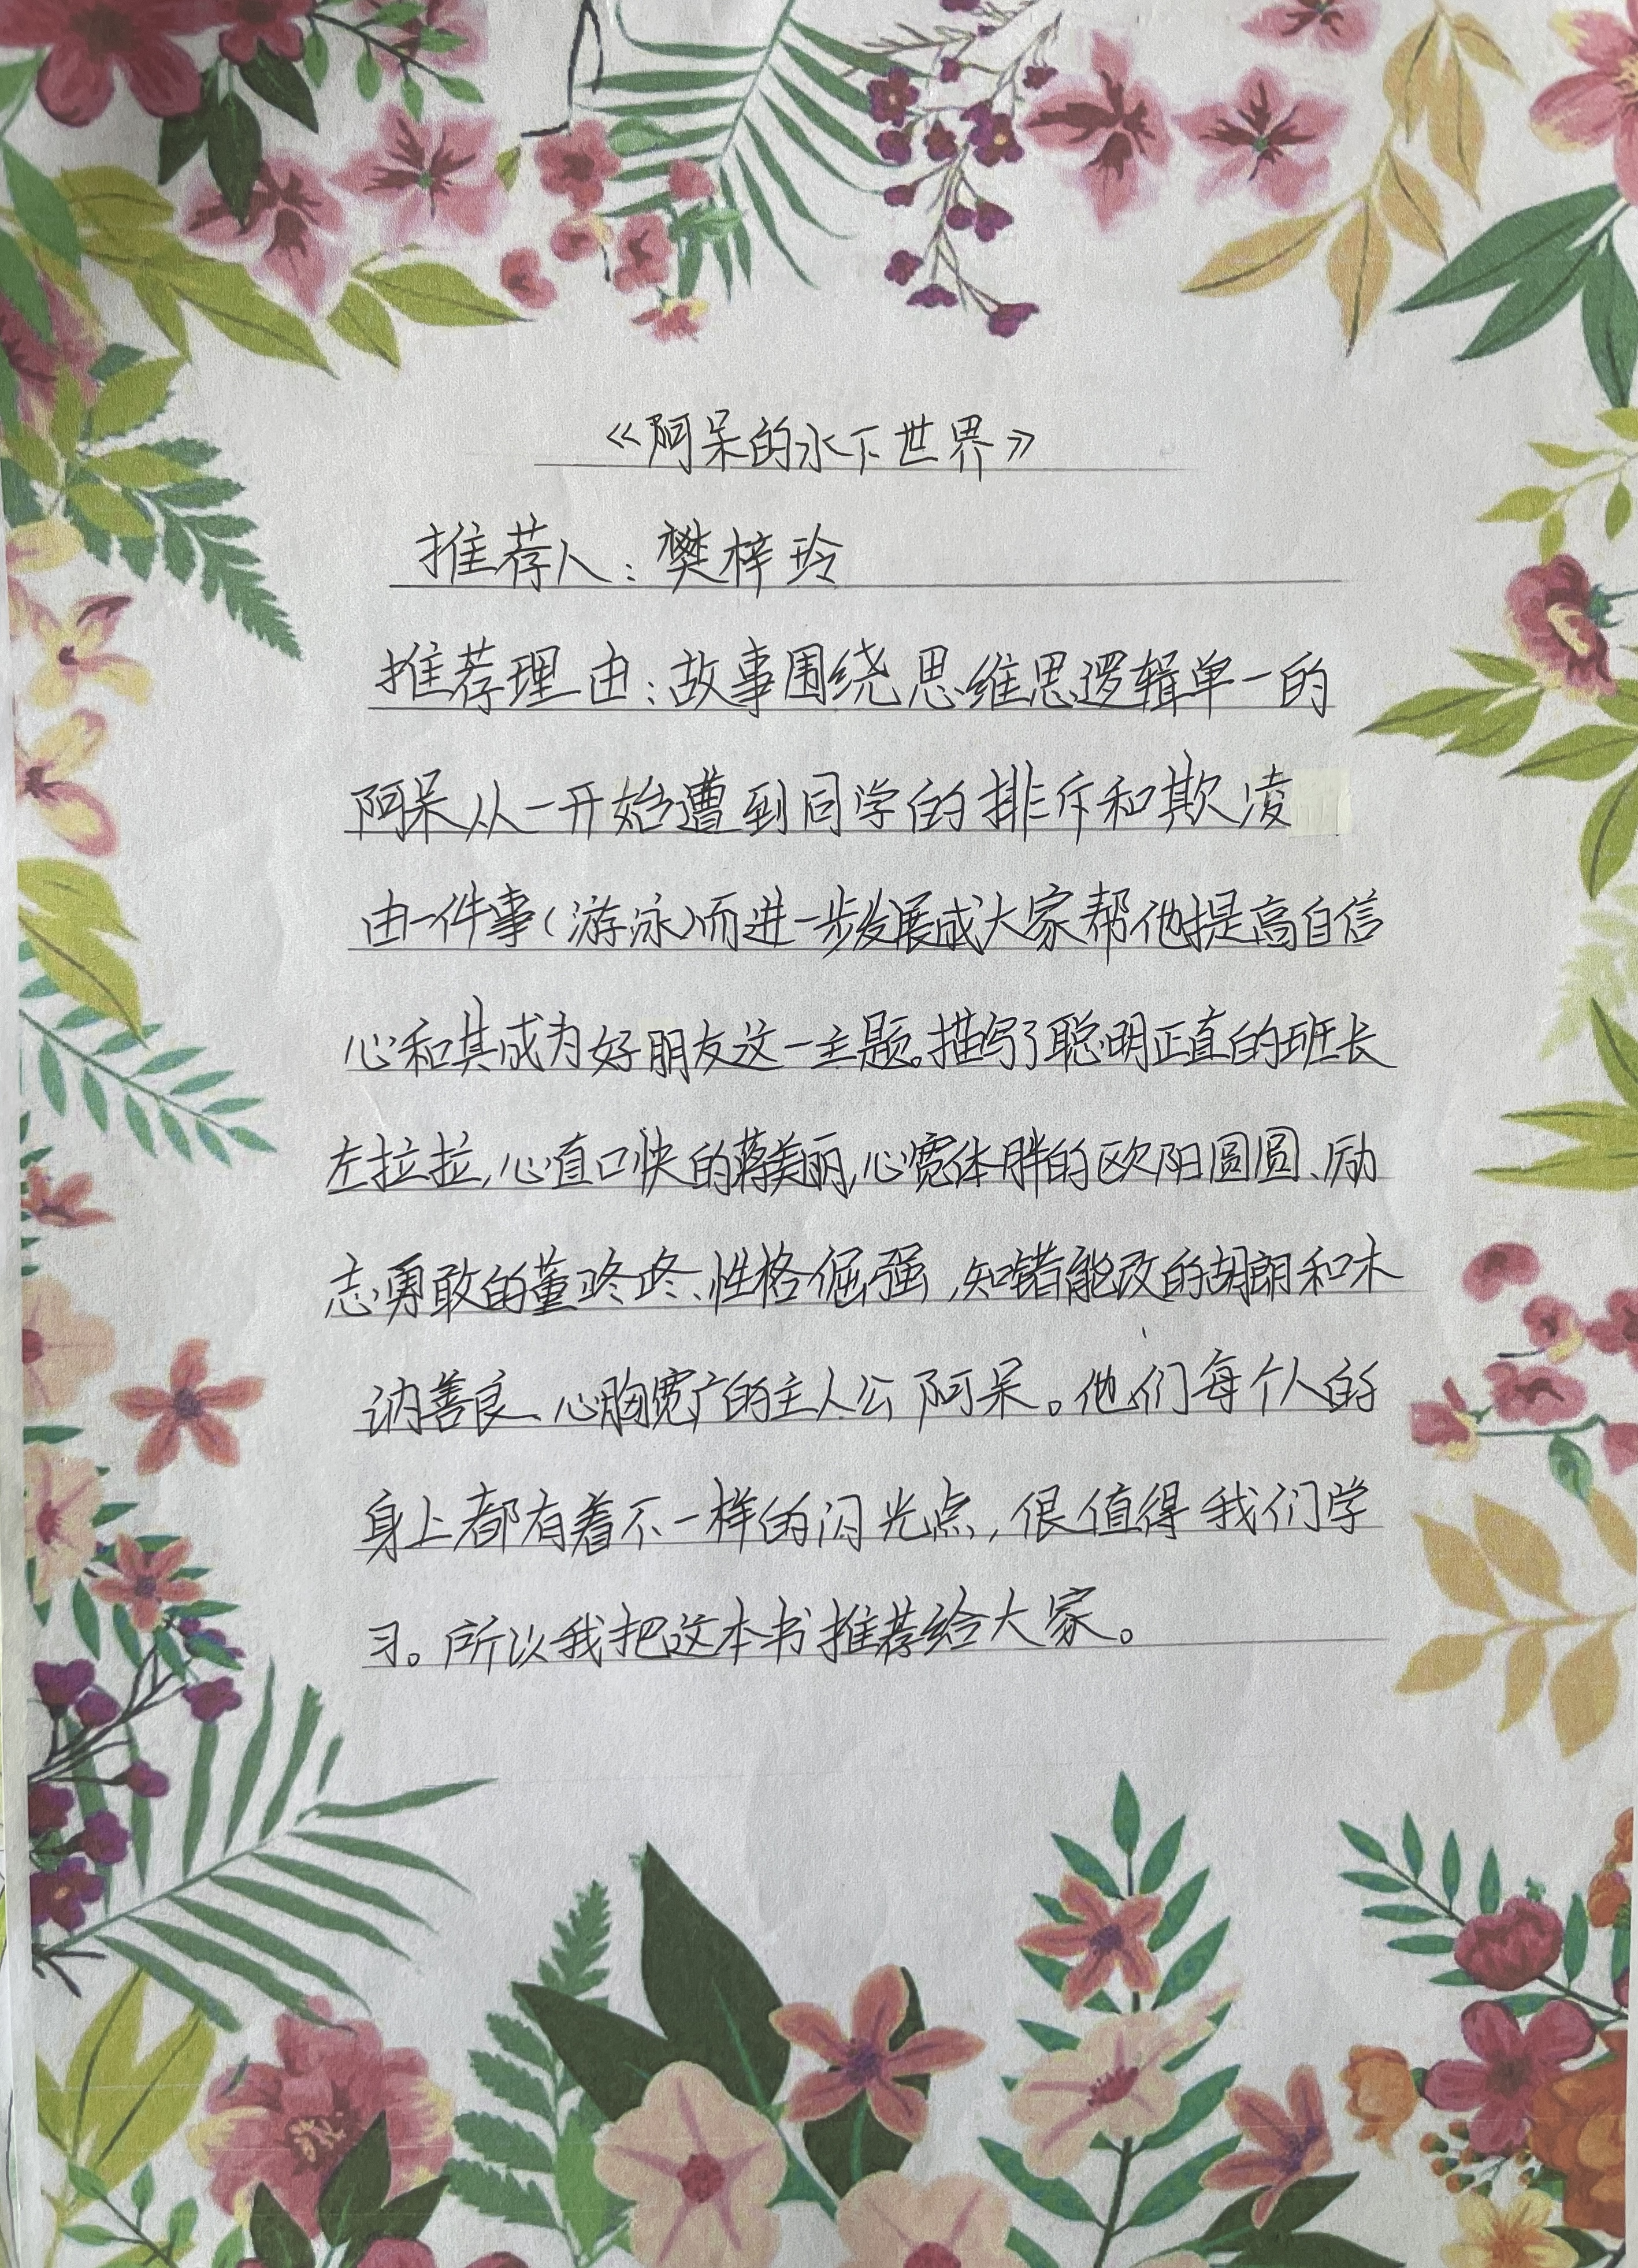 《阿呆的水下世界》
推荐人：樊梓玲
推荐理由：故事围绕思维思逻辑单一的
阿呆从一开始遭到同学的排斥和欺凌
由一件事（游泳）而进一步发展成大家帮他提高自信
心和其成为好朋友这一主题。描写了聪明正直的班长
左拉拉，心直口快的蒋美丽，心宽体胖的欧阳圆圆、励
志勇敢的董咚咚、性格倔强，知错能改的胡朗和木
讷善良、心胸宽广的主人公阿呆。他们每个人的
身上都有着不一样的闪光点，很值得我们学
习。所以我把这本书推荐给大家。